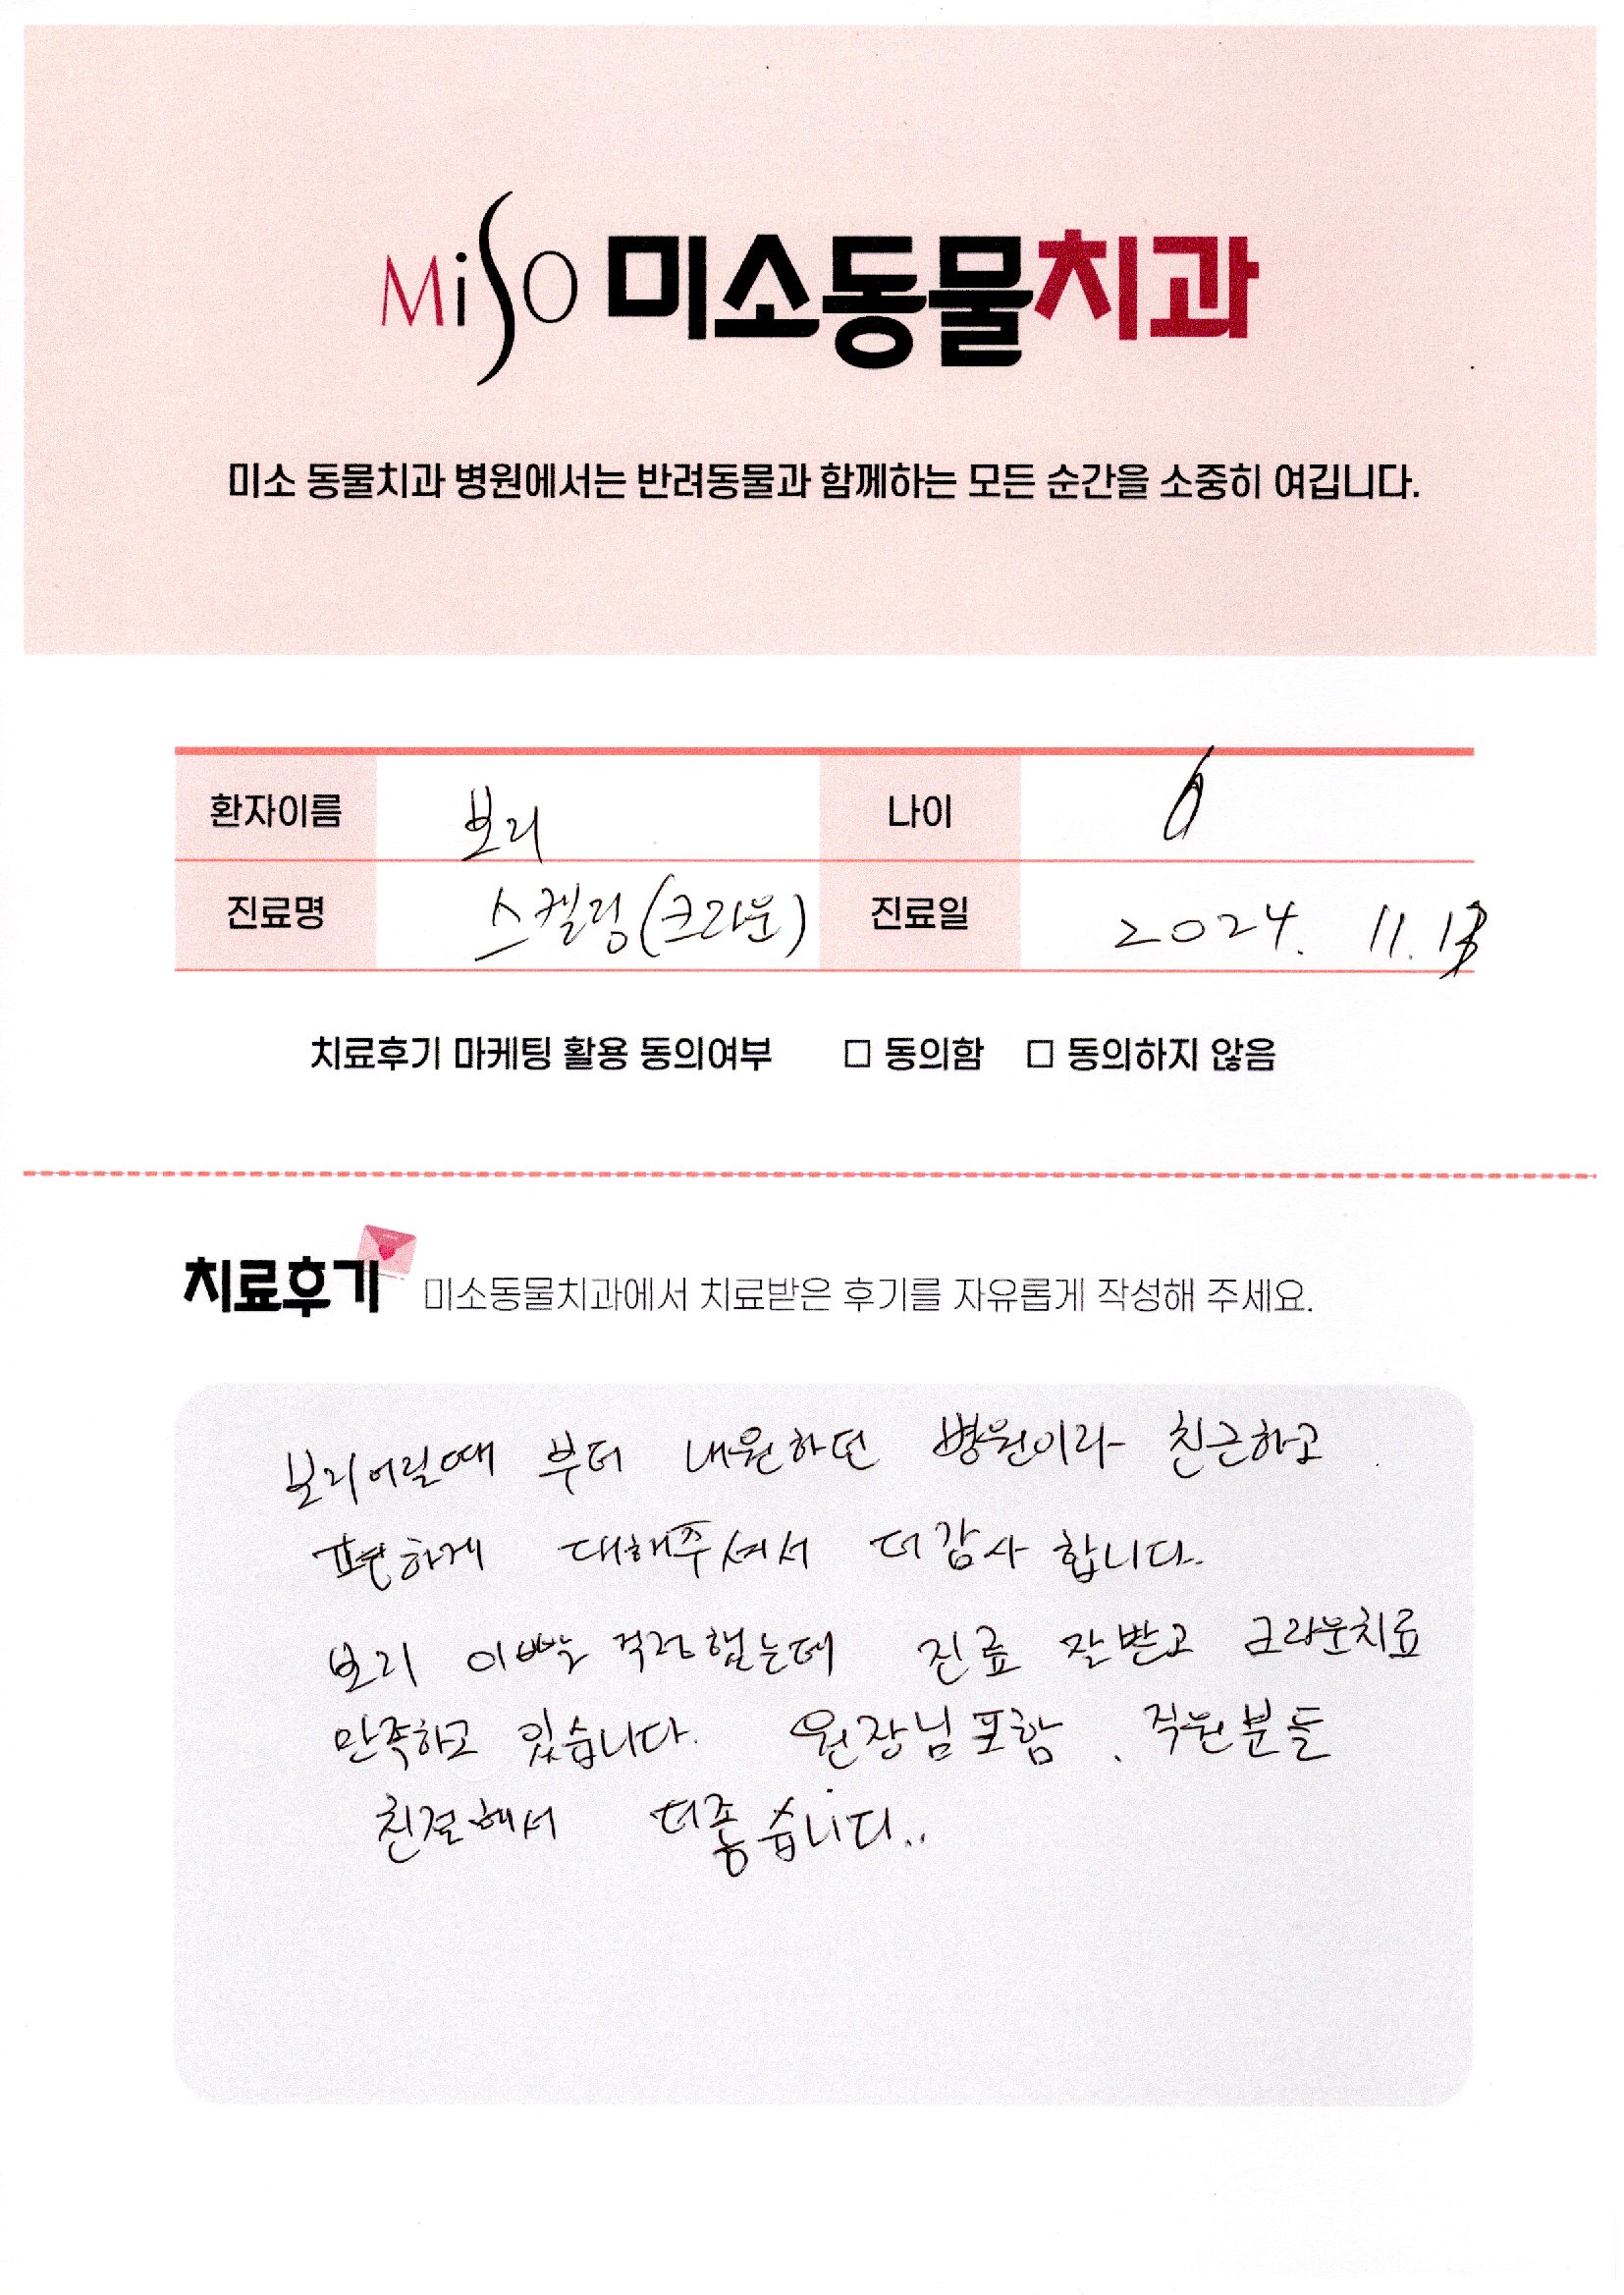 MiSO 미소동물치과
미소 동물치과 병원에서는 반려동물과 함께하는 모든 순간을 소중히 여깁니다.
환자이름 보리 나이 6
진료명 스켈링(크라운) 진료일 2024. 11.13
치료후기 마케팅 활용 동의여부 □ 동의함 □ 동의하지 않음
치료후기 미소동물치과에서 치료받은 후기를 자유롭게 작성해 주세요.
보리어릴때 부터 내원하던 병원이라 친근하고
편하게 대해주셔서 더감사 합니다.
보리 이빨 걱정했는데 진료 잘받고 크라운치료
만족하고 있습니다. 원장님포함, 직원분들
친절해서 더좋습니다..